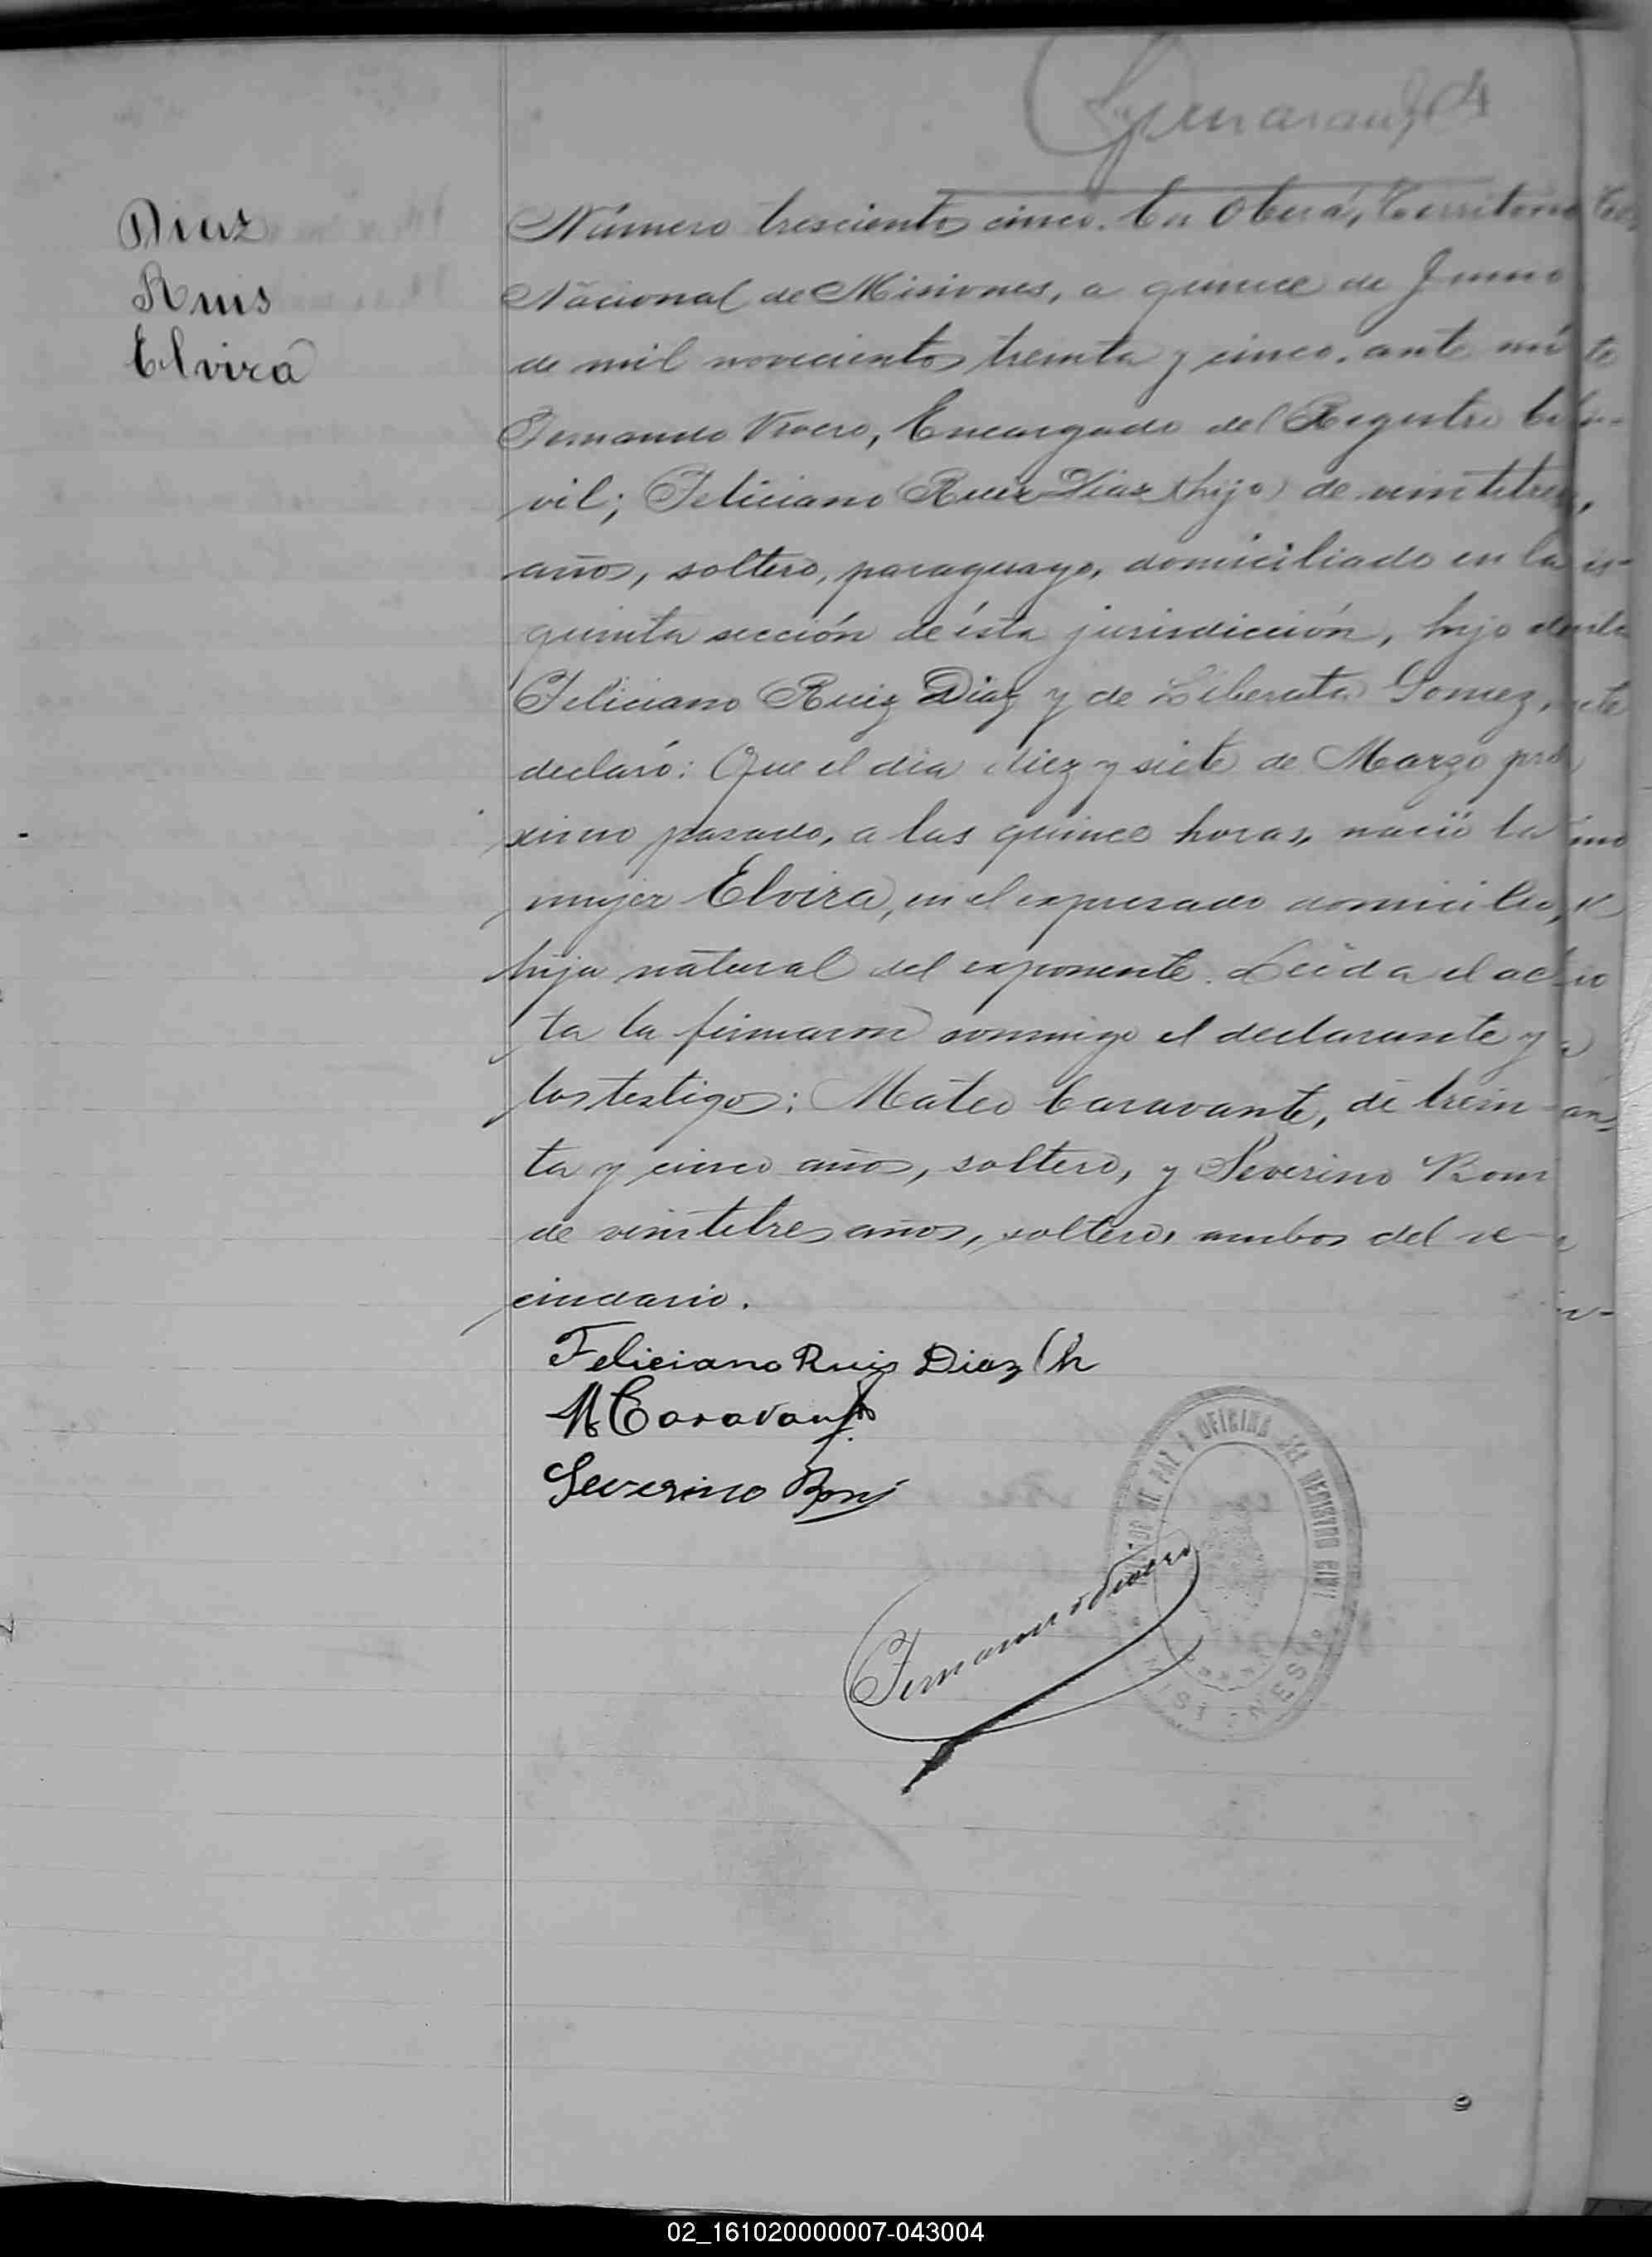 Diaz
Ruis
Elvira
Número trescientos cinco. En Oberá, Territorio
Nacional de Misiones, a quince de Junio
de mil novecientos treinta y cinco. ante mí
Fernando Vivero, Encargado del Registro Ci-
vil; Feliciano Ruiz Diaz (hijo) de veintitres,
años, soltero, paraguayo, domiciliado en la
quinta sección de ésta jurisdicción, hijo de
Feliciano Ruiz Diaz y de Liberata Gomez,
declaró: Que el día diez y siete de Marzo pró
ximo pasado, a las quince horas, nació la
mujer Elvira, en el expresado domicilio,
hija natural del exponente. Leída el ac
ta la firmaron conmigo el declarante y
los testigos: Mateo Caravante, de trein-
ta y cinco años, soltero, y Severino Roni
de veintitres años, soltero, ambos del ve-
cindario.
Feliciano Ruis Diaz (h
M Caravante
Severino Roni
DE PAZ Y OFICINA DEL REGISTRO CIVIL
MISIONES
Fernando Vivero
02_161020000007-043004